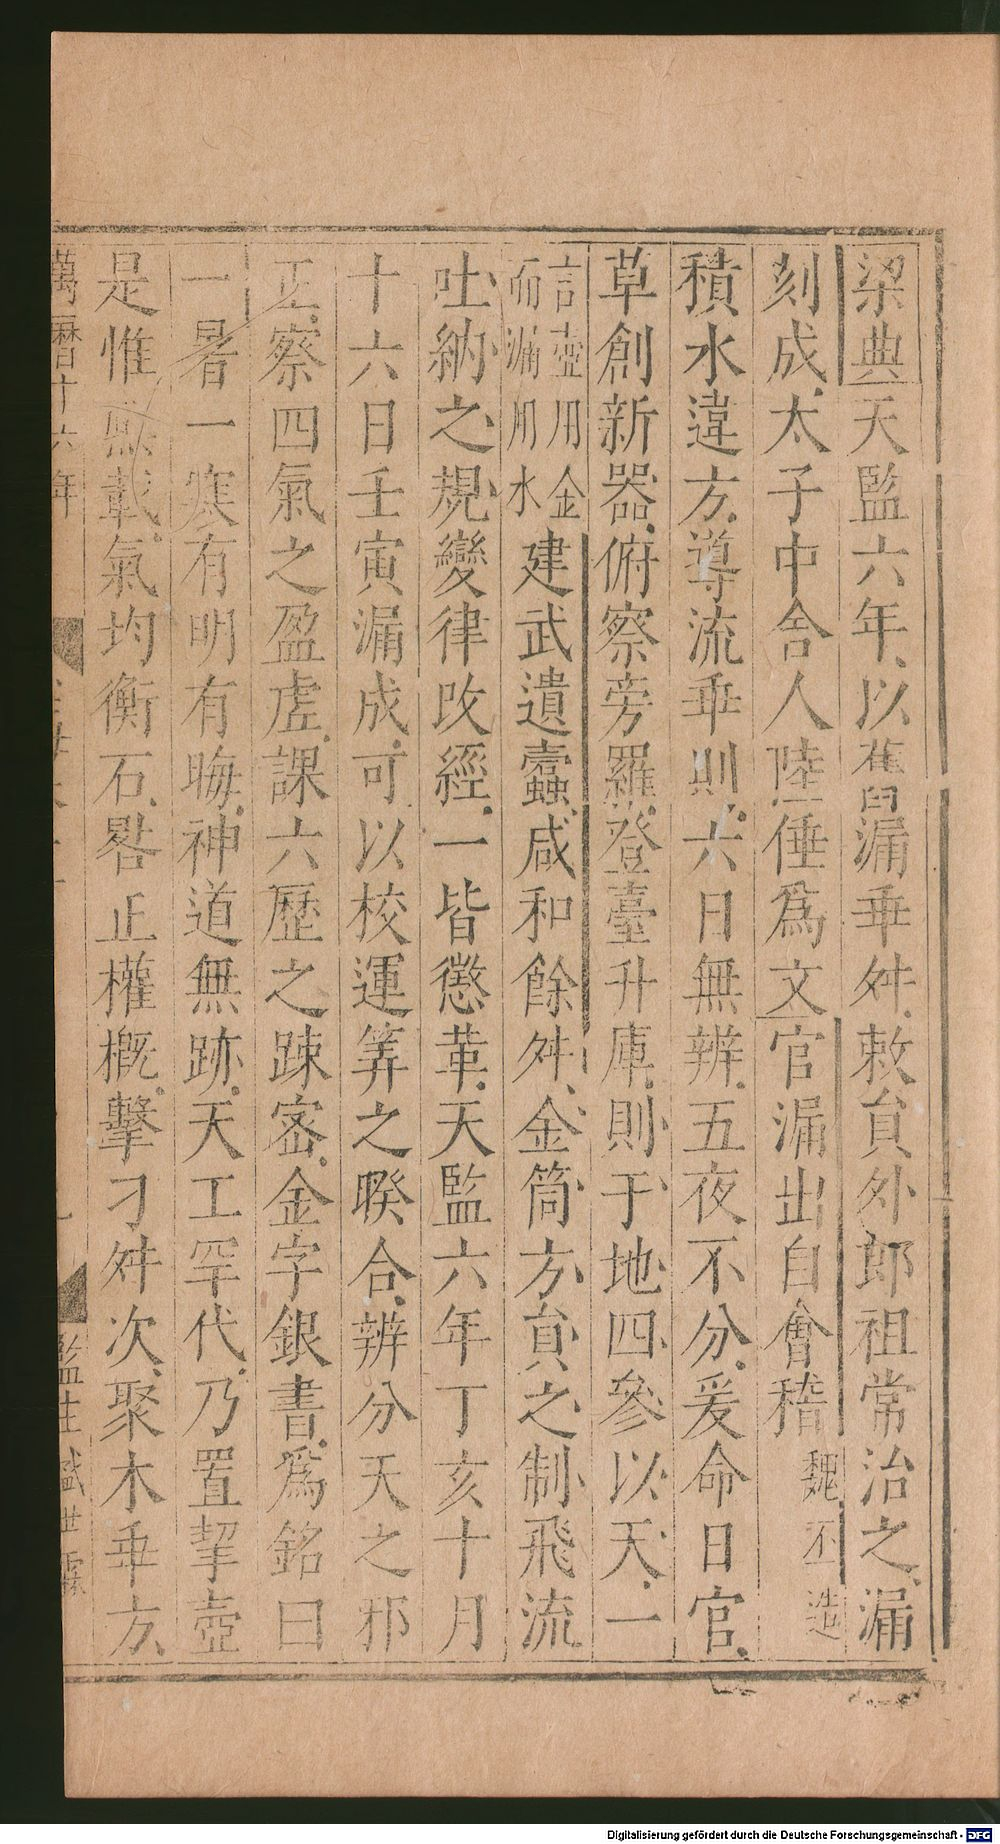 梁典天監六年以舊漏乖舛敕貟外郎祖常治之漏
刻成太子中舍人陸倕爲文官漏出自會稽魏丕造
積水違方導流乖則六日無辨五夜不分爰命日官
草創新器俯察旁羅登臺升庫則于地四參以天一
言壺用金
而漏用水
建武遺蠧咸和餘舛金筒方貟之制飛流
吐納之規變律改經一皆懲革天監六年丁亥十月
十六日壬寅漏成可以校運筭之睽合辨分天之邪
正察四氣之盈虗課六歷之踈密金字銀書爲銘曰
一暑一寒有明有晦神道無跡天工罕代乃置挈壺
是惟熈載氣均衡石晷正權概擊刁舛次聚木乖方
萬曆十六年
監生
Digitalisierung gefördert durch die Deutsche Forschungsgemeinschaft - DFG